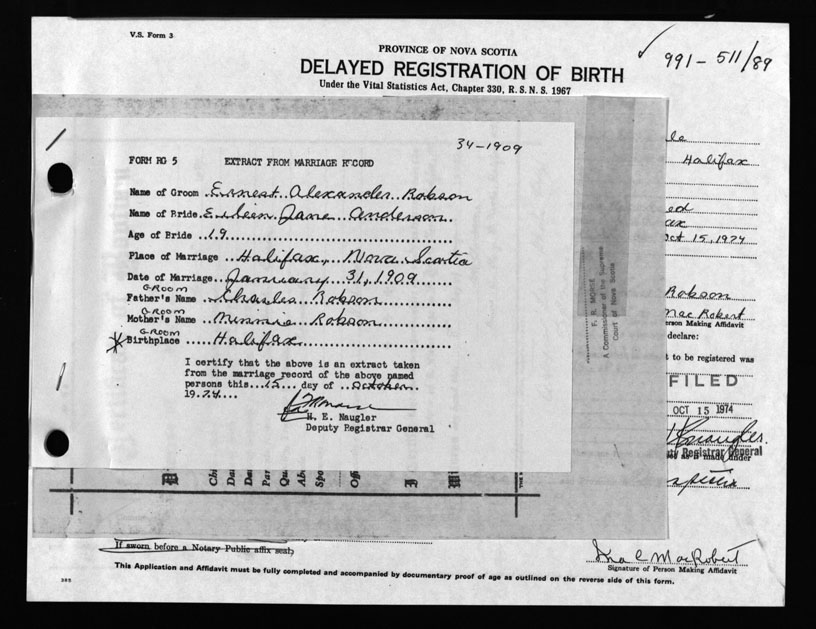 V.S. Form 3
PROVINCE OF NOVA SCOTIA
DELAYED REGISTRATION OF BIRTH
Under the Vital Statistics Act, Chapter 330, R. S. N. S. 1967
991 - 511/89
34-1909
FORM RG 5 EXTRACT FROM MARRIAGE RECORD
Name of Groom Ernest Alexander Robson
Name of Bride Eileen Jane Anderson
Age of Bride 19
Place of Marriage Halifax, Nova Scotia
Date of Marriage January 31, 1909
GROOM
Father's Name Charles Robson
GROOM
Mother's Name Minnie Robson
GROOM
Birthplace Halifax
I certify that the above is an extract taken
from the marriage record of the above named
persons this 15 day of October
1974
H. E. Naugler
Deputy Registrar General
F. R. MORSE
A Commissioner of the Supreme
Court of Nova Scotia
le
Halifax
ed
ax
Oct 15, 1974
Robson
MacRobert
erson Making Affidavit
declare:
t to be registered was
FILED
OCT 15 1974
Naugler
uty Registrar General
as made under
If sworn before a Notary Public affix seal,
Ina C MacRobert
Signature of Person Making Affidavit
This Application and Affidavit must be fully completed and accompanied by documentary proof of age as outlined on the reverse side of this form.